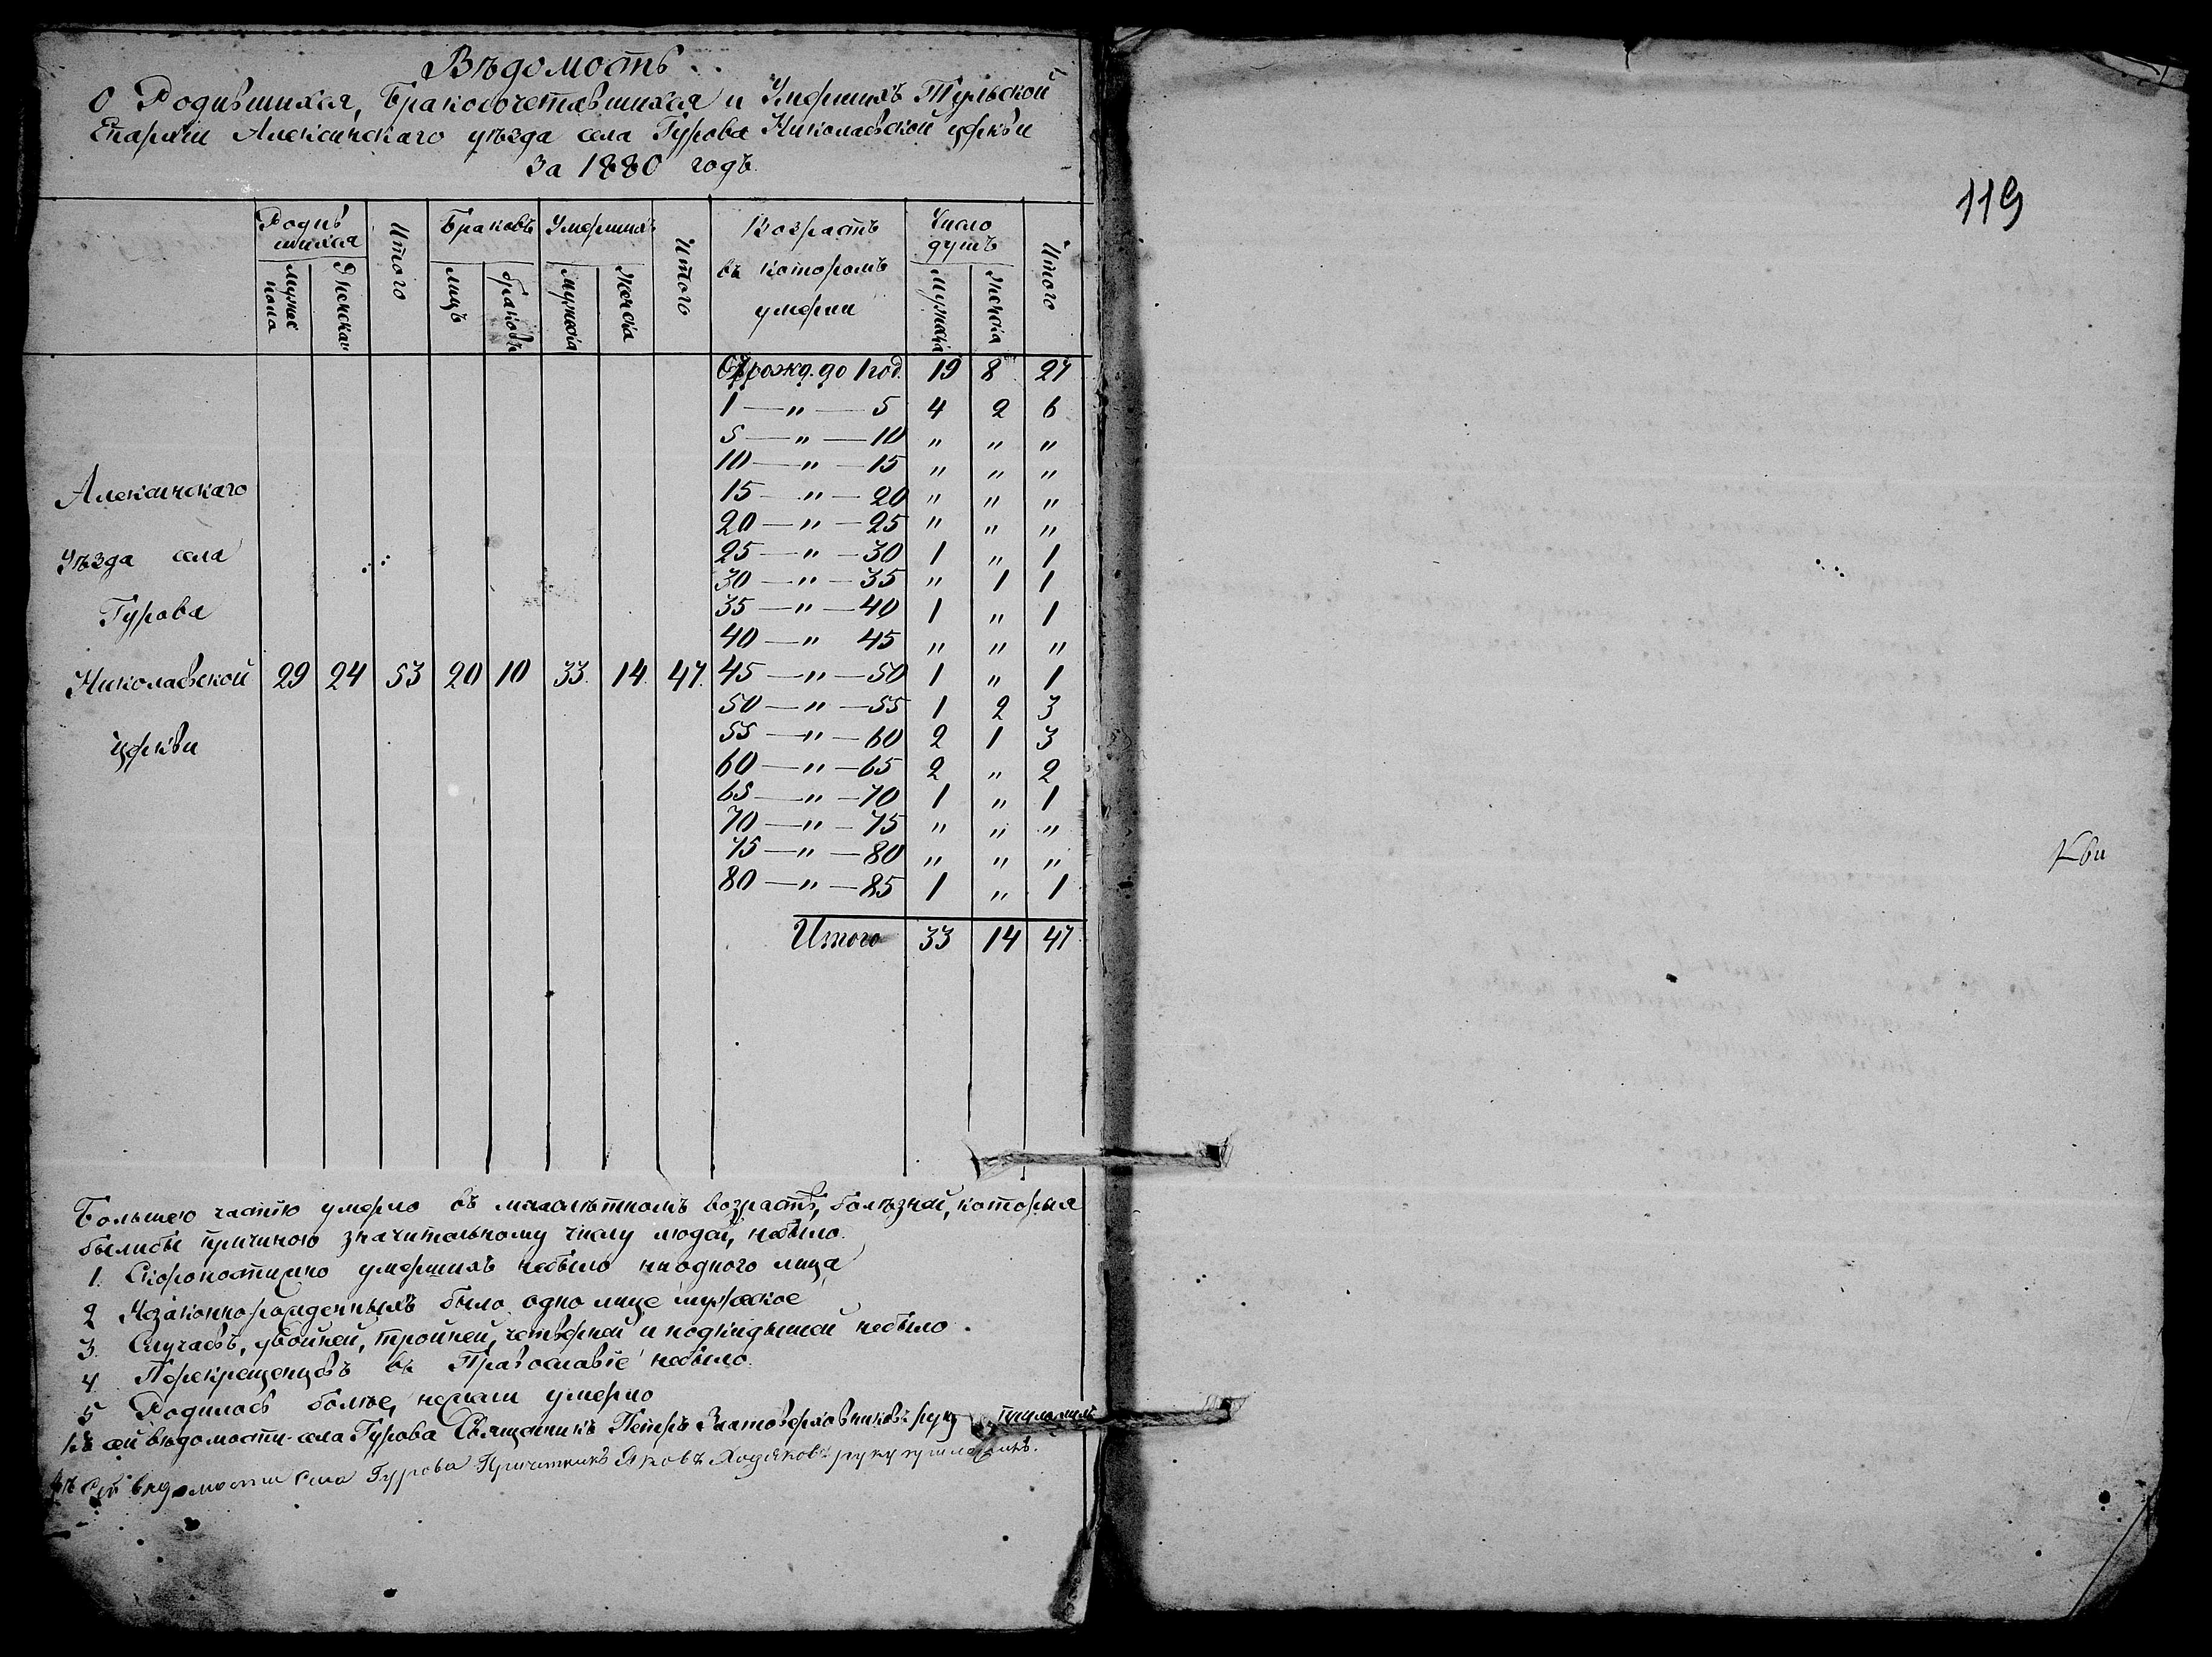 Вѣдомость
О Родившихся, Бракосочетавшихся и Умершихъ Тульской
Епархіи Алексинскаго уѣзда села Гурова Николаевской церкви
За 1880 годъ.
Родив
шихся
Итого
Браковъ
Умершихъ
Итого
Возрастъ
въ которомъ
умерли
Число
душъ
Итого
Мужес
пола
Женскаго
лицъ
браковъ
Мужеска
Женска
Мужеска
Женска
От рожд. до 1 год. 19 8 27
1 — " — 5 4 2 6
5 — " — 10 " " "
10 — " — 15 " " "
15 — " — 20 " " "
20 — " — 25 " " "
25 — " — 30 1 " 1
30 — " — 35 " 1 1
35 — " — 40 1 " 1
40 — " 45 " " "
45 — " — 50 1 " 1
50 — " — 55 1 2 3
55 — " — 60 2 1 3
60 — " — 65 2 " 2
65 — " — 70 1 " 1
70 — " — 75 " " "
75 — " — 80 " " "
80 — " — 85 1 " 1
Итого 33 14 47
Алексинскаго
Уѣзда села
Гурова
Николаевской 29 24 53 20 10 33. 14. 47.
церкви
Большею частію умерло въ малолѣтномъ возрастѣ, болѣзней, которыя
былибы причиною значительному числу людей, небыло.
1. Скоропостижно умершихъ небыло ниодного лица
2 Незаконнорожденныхъ было одно лице мужеское
3. Случаевъ, двойней, тройней, четверней и подкидышей небыло.
4. Перекрещенцевъ въ Православіе небыло.
5 Родилось болѣе, нежели умерло
Къ сей вѣдомости села Гурова Священникъ Петръ Златоверховниковъ руку приложилъ
Къ сей вѣдомости села Гурова Причетникъ Яковъ Ходяковъ руку приложилъ.
119
кви